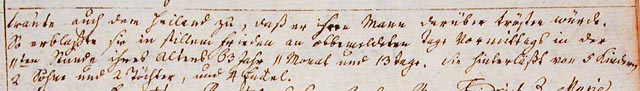 traute auch dem Heiland zu, daß er ihren Mann darüber trösten würde.
So erblaßte sie in stillem Frieden an obbemeldeten Tage Vormittags in der
11ten Stunde ihres Alters 63 Jahr 11 Monat und 13 Tage. Sie hinterläßt von 5 Kindern
2 Söhne und 2 Töchter, und 4 Enkel.